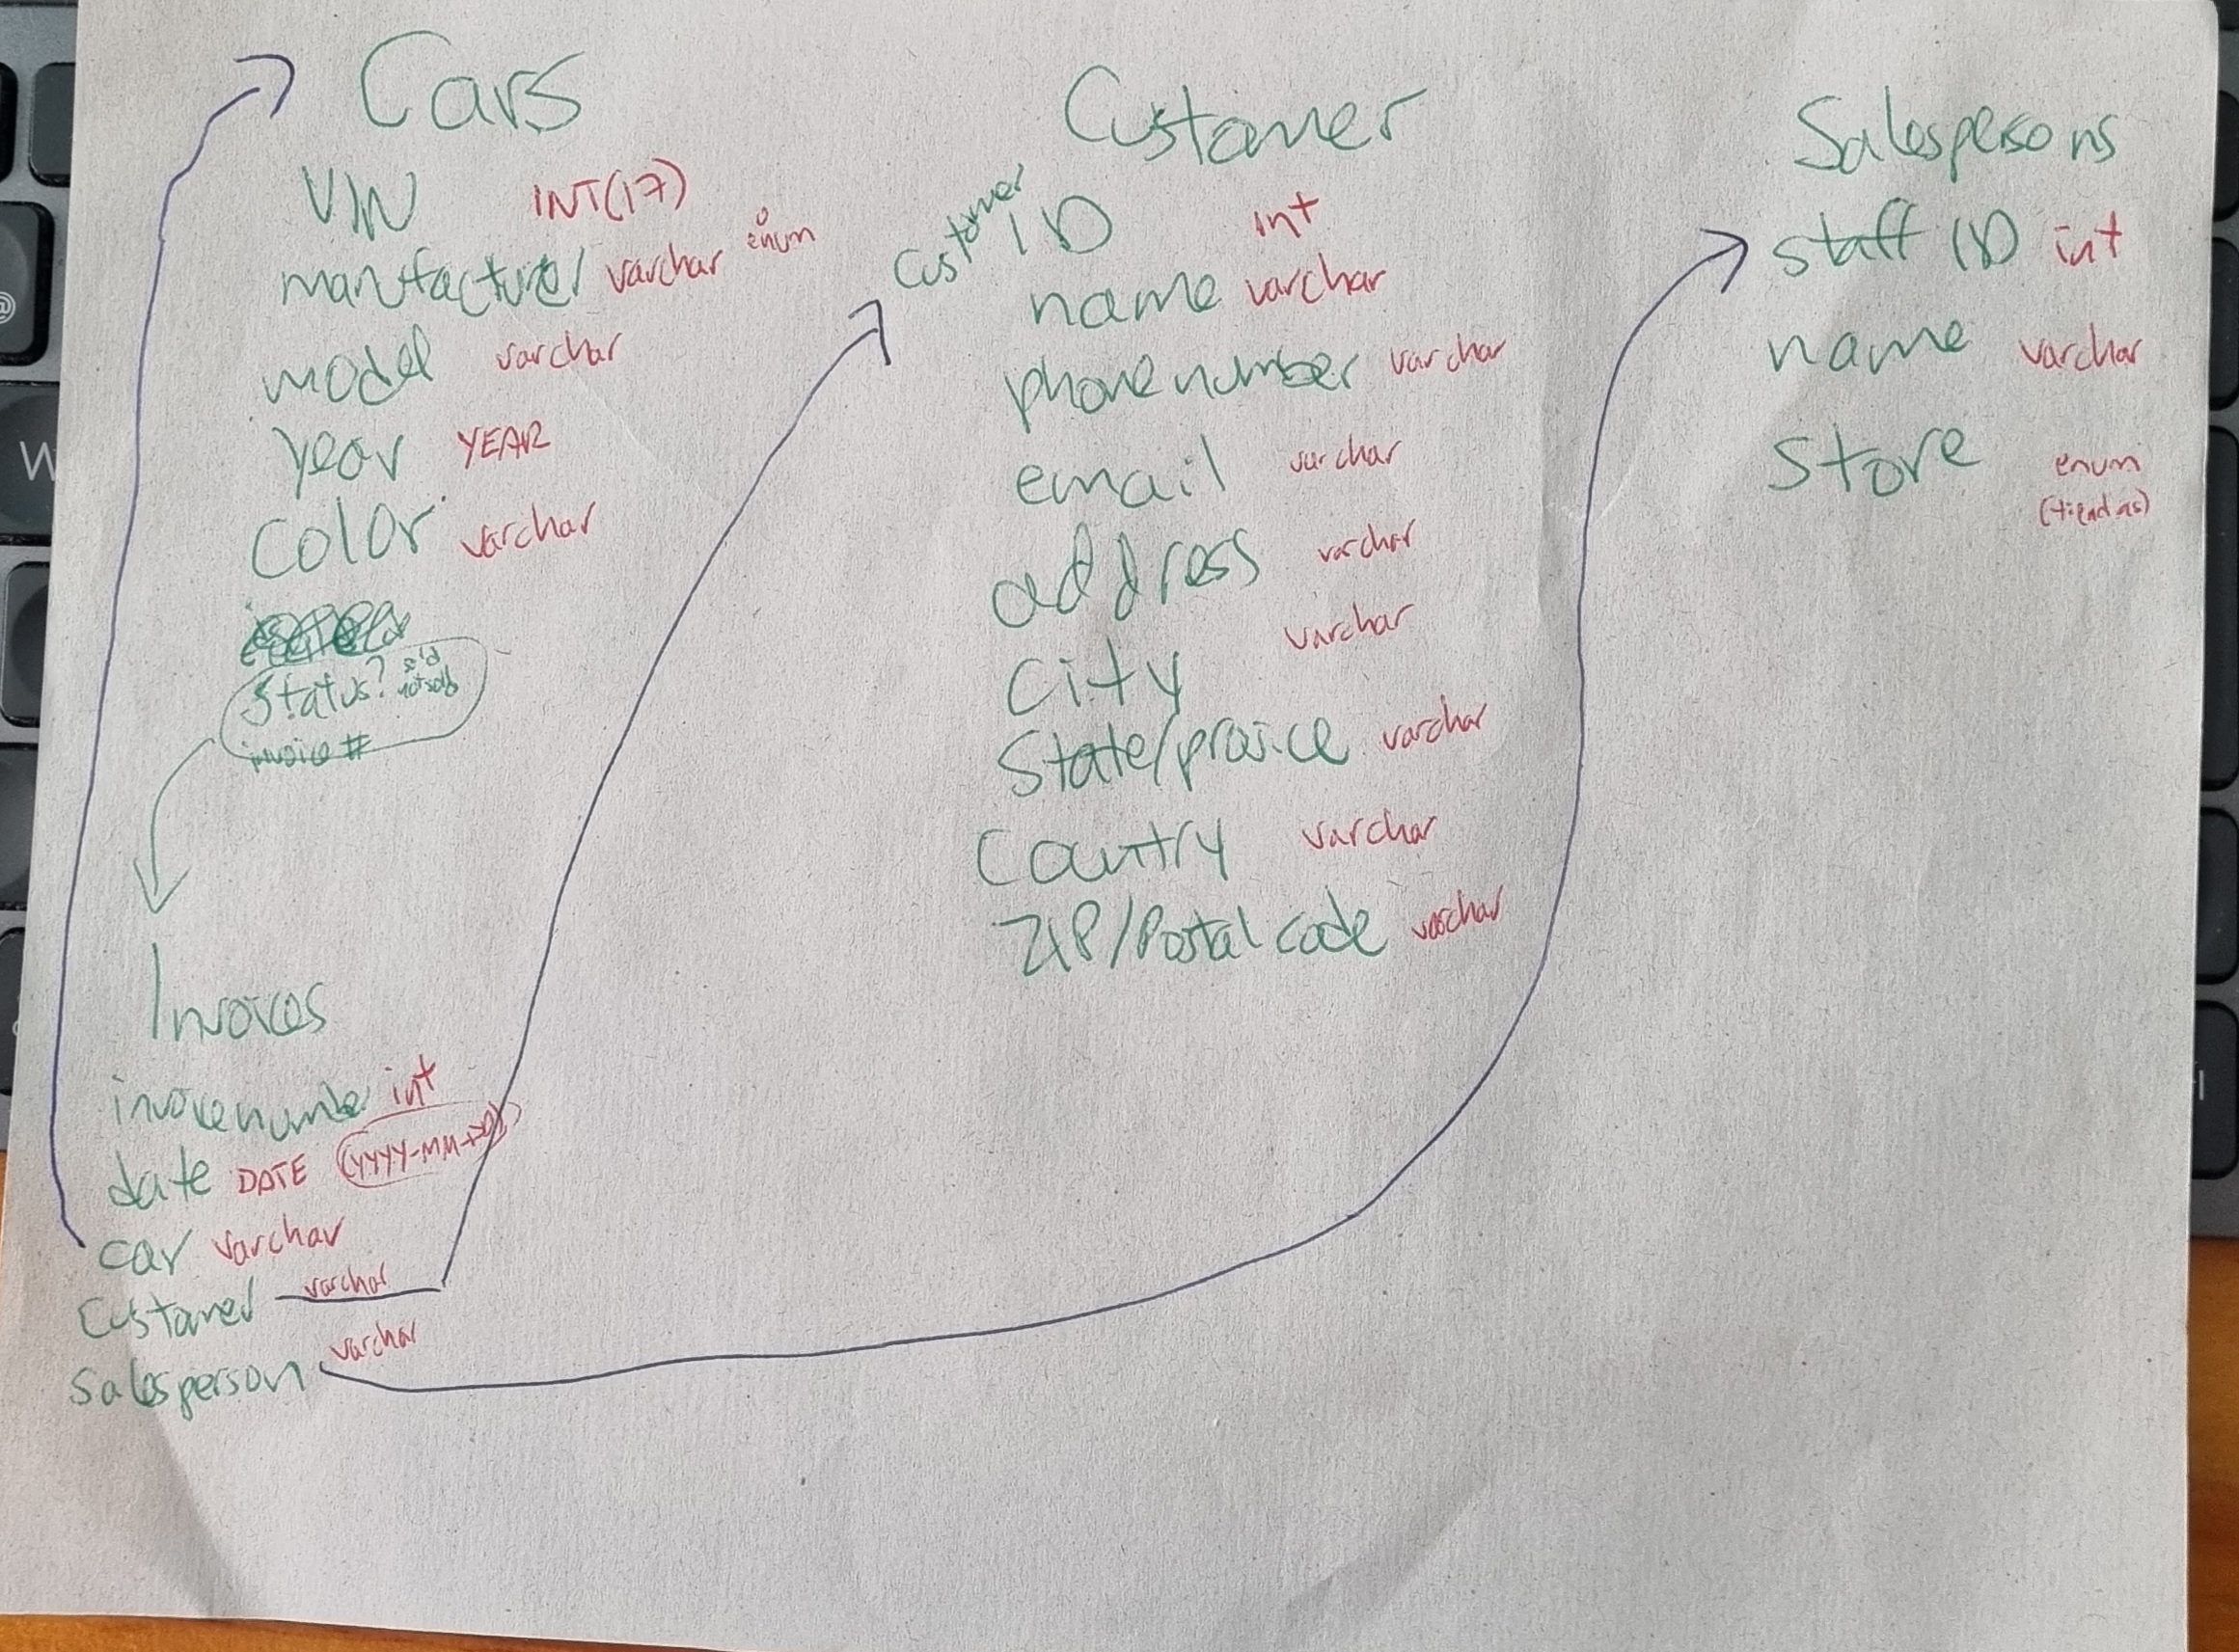 Cars
VIN INT(17)
manufacturer varchar o enum
model varchar
year YEAR
color varchar
Status? sold not sold
invoice #
Invoices
invoice number int
date DATE (YYYY-MM-DD)
car varchar
Customer varchar
Salesperson varchar
Customer
Customer ID int
name varchar
phone number varchar
email varchar
address varchar
City varchar
State/provice varchar
Country varchar
ZIP/Postal code varchar
Salespersons
staff ID int
name varchar
Store enum
(tiendas)
W
@